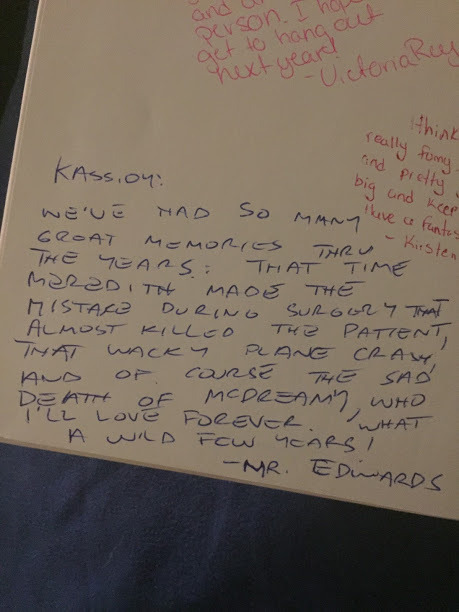 and
person. I hope
get to hang out
next year!
- Victoria
I think
really funny
and pretty
big and keep
Have a
- Kirsten
KASSIDY:
WE'VE HAD SO MANY
GREAT MEMORIES THRU
THE YEARS: THAT TIME
MEREDITH MADE THE
MISTAKE DURING SURGERY THAT
ALMOST KILLED THE PATIENT,
THAT WACKY PLANE CRASH,
AND OF COURSE THE SAD
DEATH OF MCDREAMY, WHO
I'LL LOVE FOREVER. WHAT
A WILD FEW YEARS!
- MR. EDWARDS